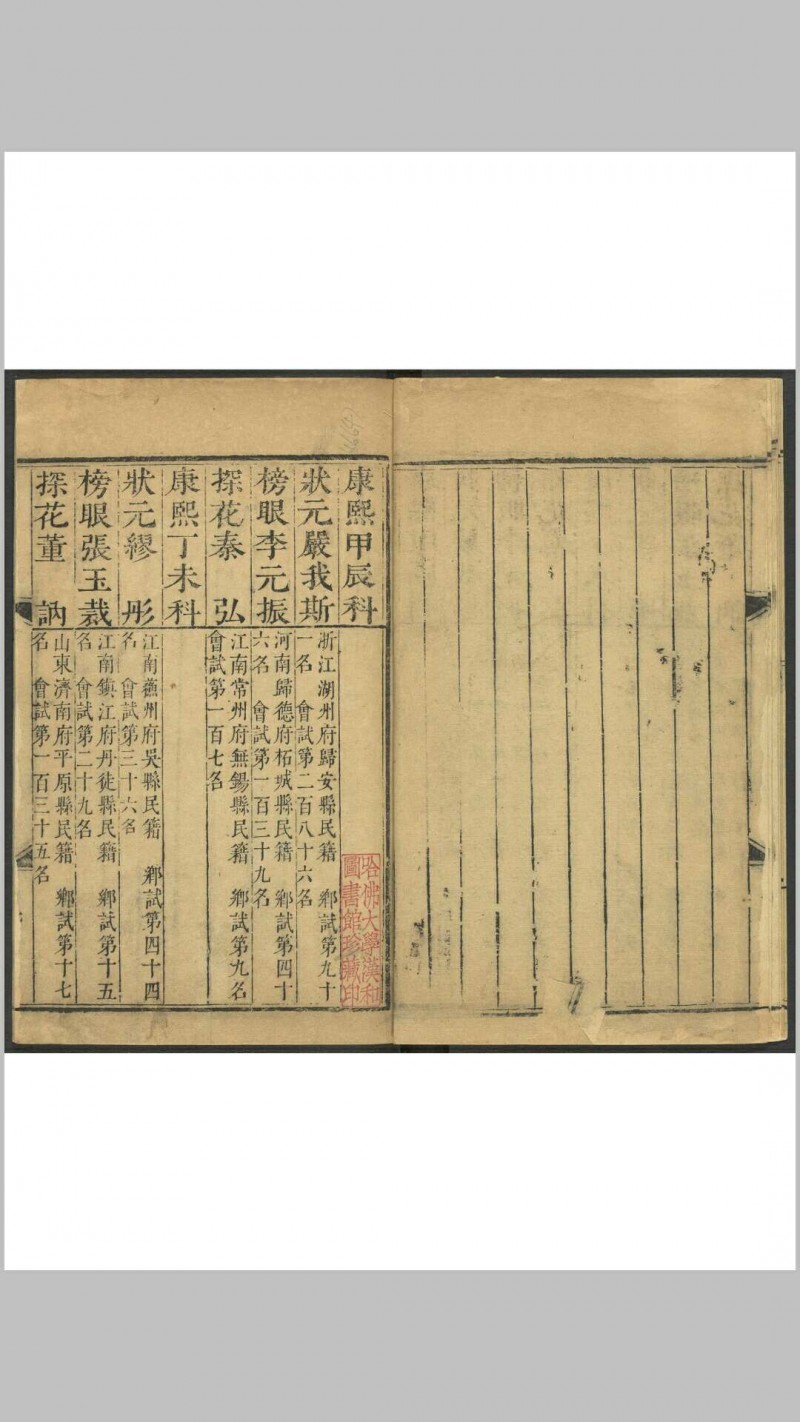 康熙甲辰科
狀元嚴我斯
浙江湖州府歸安縣民籍 鄉試第九十
一名 會試第二百八十六名
榜眼李元振
河南歸德府柘城縣民籍 鄉試第四十
六名 會試第一百三十九名
探花秦 弘
江南常州府無錫縣民籍 鄉試第九名
會試第一百七名
康熙丁未科
狀元繆 彤
江南蘇州府吳縣民籍 鄉試第四十四
名 會試第三十六名
榜眼張玉裁
江南鎮江府丹徒縣民籍 鄉試第十五
名 會試第二十九名
探花董 訥
山東濟南府平原縣民籍 鄉試第十七
名 會試第一百三十五名
哈佛大學漢和
圖書館珍藏印